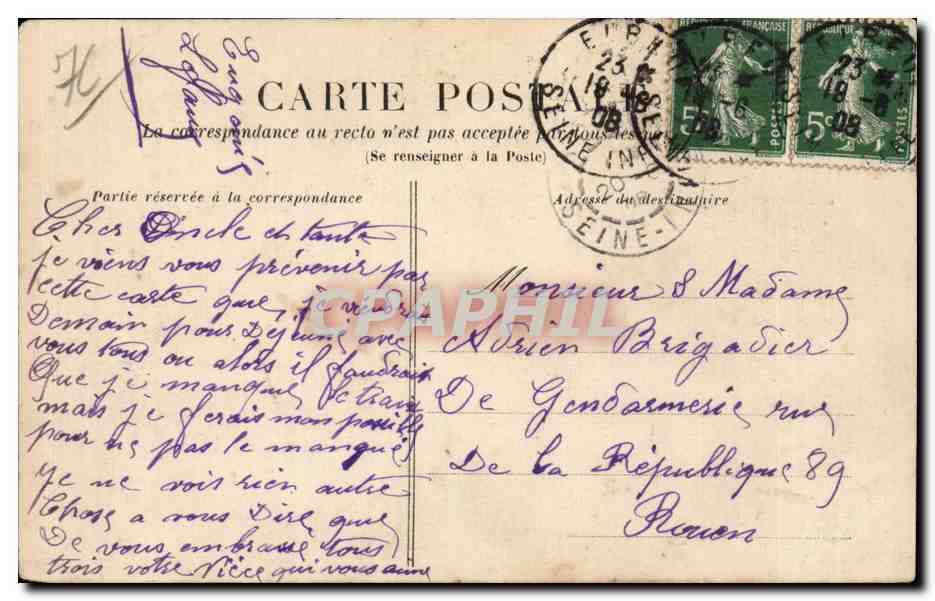 CARTE POSTALE
La correspondance au recto n'est pas acceptée par tous les
(Se renseigner à la Poste)
Partie réservée à la correspondance
Adresse du destinataire
Cher Oncle et tante
je viens vous prévenir par
cette carte que je viendrai
Demain pour Déjeuné avec
vous tous ou alors il faudrait
Que je manque le train
mais je ferais mon possible
pour ne pas le manqué
Je ne vois rien autre
Chose a vous Dire que
De vous embrassé tous
trois votre Nièce qui vous aime
Monsieur & Madame
Adrien Brigadier
De Gendarmerie rue
De la République 89
Rouen
REPUBLIQUE FRANÇAISE
5c POSTES
5c POSTES
23
18 -6
08
SEINE INF
20
SEINE-INF
CPAPHIL